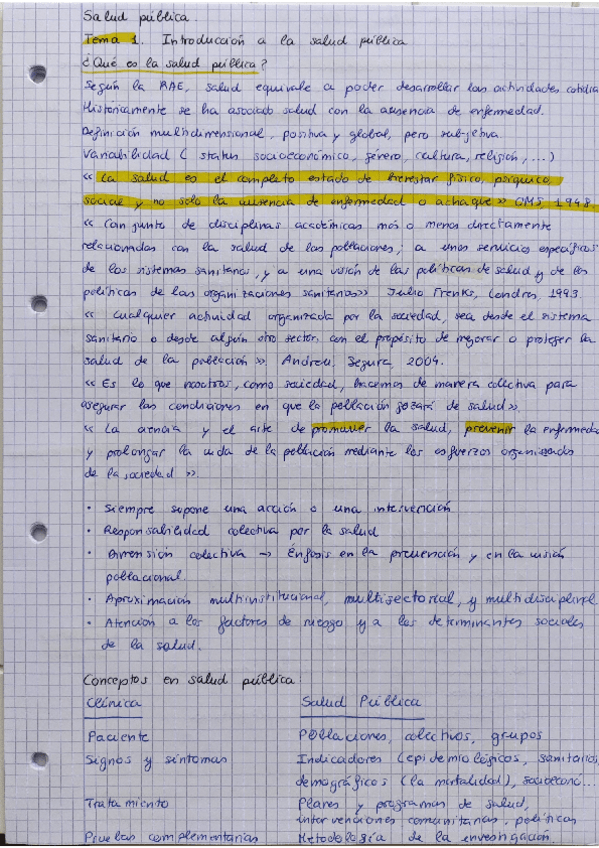 Salud pública.
Tema 1. Introducción a la salud pública
¿Qué es la salud pública?
Según la RAE, salud equivale a poder desarrollar las actividades cotidia
Históricamente se ha asociado salud con la ausencia de enfermedad.
Definición multidimensional, positiva y global, pero subjetiva.
Variabilidad ( status socioeconómico, género, cultura, religión, ...)
« La salud es el completo estado de bienestar físico, psíquico,
social y no solo la ausencia de enfermedad o achaque » OMS 1948.
« Conjunto de disciplinas académicas más o menos directamente
relacionadas con la salud de las poblaciones; a unos servicios específicos
de los sistemas sanitarios, y a una visión de las políticas de salud y de las
políticas de las organizaciones sanitarias» Julio Frenks, Londres, 1993.
« Cualquier actividad organizada por la sociedad, sea desde el sistema
sanitario o desde algún otro sector, con el propósito de mejorar o proteger la
salud de la población » Andreu, Segura, 2004.
« Es lo que nosotros, como sociedad, hacemos de manera colectiva para
asegurar las condiciones en que la población gozará de salud».
« La ciencia y el arte de promover la salud, prevenir la enfermeda
y prolongar la vida de la población mediante los esfuerzos organizados
de la sociedad ».
· Siempre supone una acción o una intervención
· Responsabilidad colectiva por la salud
· Dimensión colectiva → Énfasis en la prevención y en la visión
poblacional.
· Aproximación multiinstitucional, multisectorial, y multidisciplinal
· Atención a los factores de riesgo y a los determinantes sociales
de la salud.
Conceptos en salud pública:
Clínica Salud Pública
Paciente Poblaciones, colectivos, grupos
Signos y síntomas Indicadores (epidemiológicos, sanitarios
demográficos (la mortalidad), socioeconó...
Tratamiento Planes y programas de salud,
intervenciones comunitarias, políticas
Pruebas complementarias Metodología de la investigación.